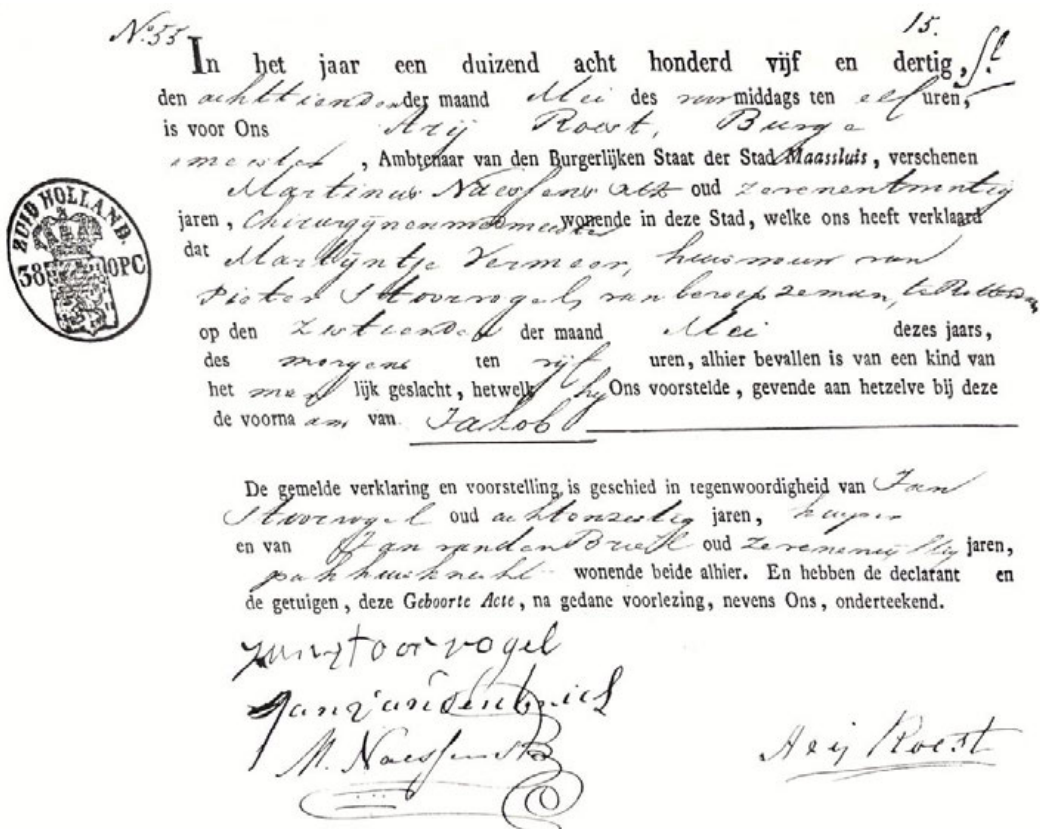 15.
N.º 55
In het jaar een duizend acht honderd vijf en dertig,
den achttienden der maand Mei des voormiddags ten elf uren,
is voor Ons Arij Roest, Burge
meester, Ambtenaar van den Burgerlijken Staat der Stad Maassluis, verschenen
Martinus Naessens oud zevenentwintig
jaren, Chirurgijn en vroedmeester wonende in deze Stad, welke ons heeft verklaard
dat Martijntje Vermeer, huisvrouw van
Pieter Stoorvogel, van beroep zeeman, te Rotterdam,
op den zestienden der maand Mei dezes jaars,
des morgens ten vijf uren, alhier bevallen is van een kind van
het man lijk geslacht, hetwelk hij Ons voorstelde, gevende aan hetzelve bij deze
de voorna am van Jakob
ZUID HOLLAND.
38 OPC
De gemelde verklaring en voorstelling is geschied in tegenwoordigheid van Jan
Stoorvogel oud achtenzestig jaren, kuiper
en van Jan van den Briel oud jaren,
pakhuisknecht wonende beide alhier. En hebben de declarant en
de getuigen, deze Geboorte Acte, na gedane voorlezing, nevens Ons, onderteekend.
Jan Stoorvogel
Jan van den Briel
M. Naessens
Arij Roest